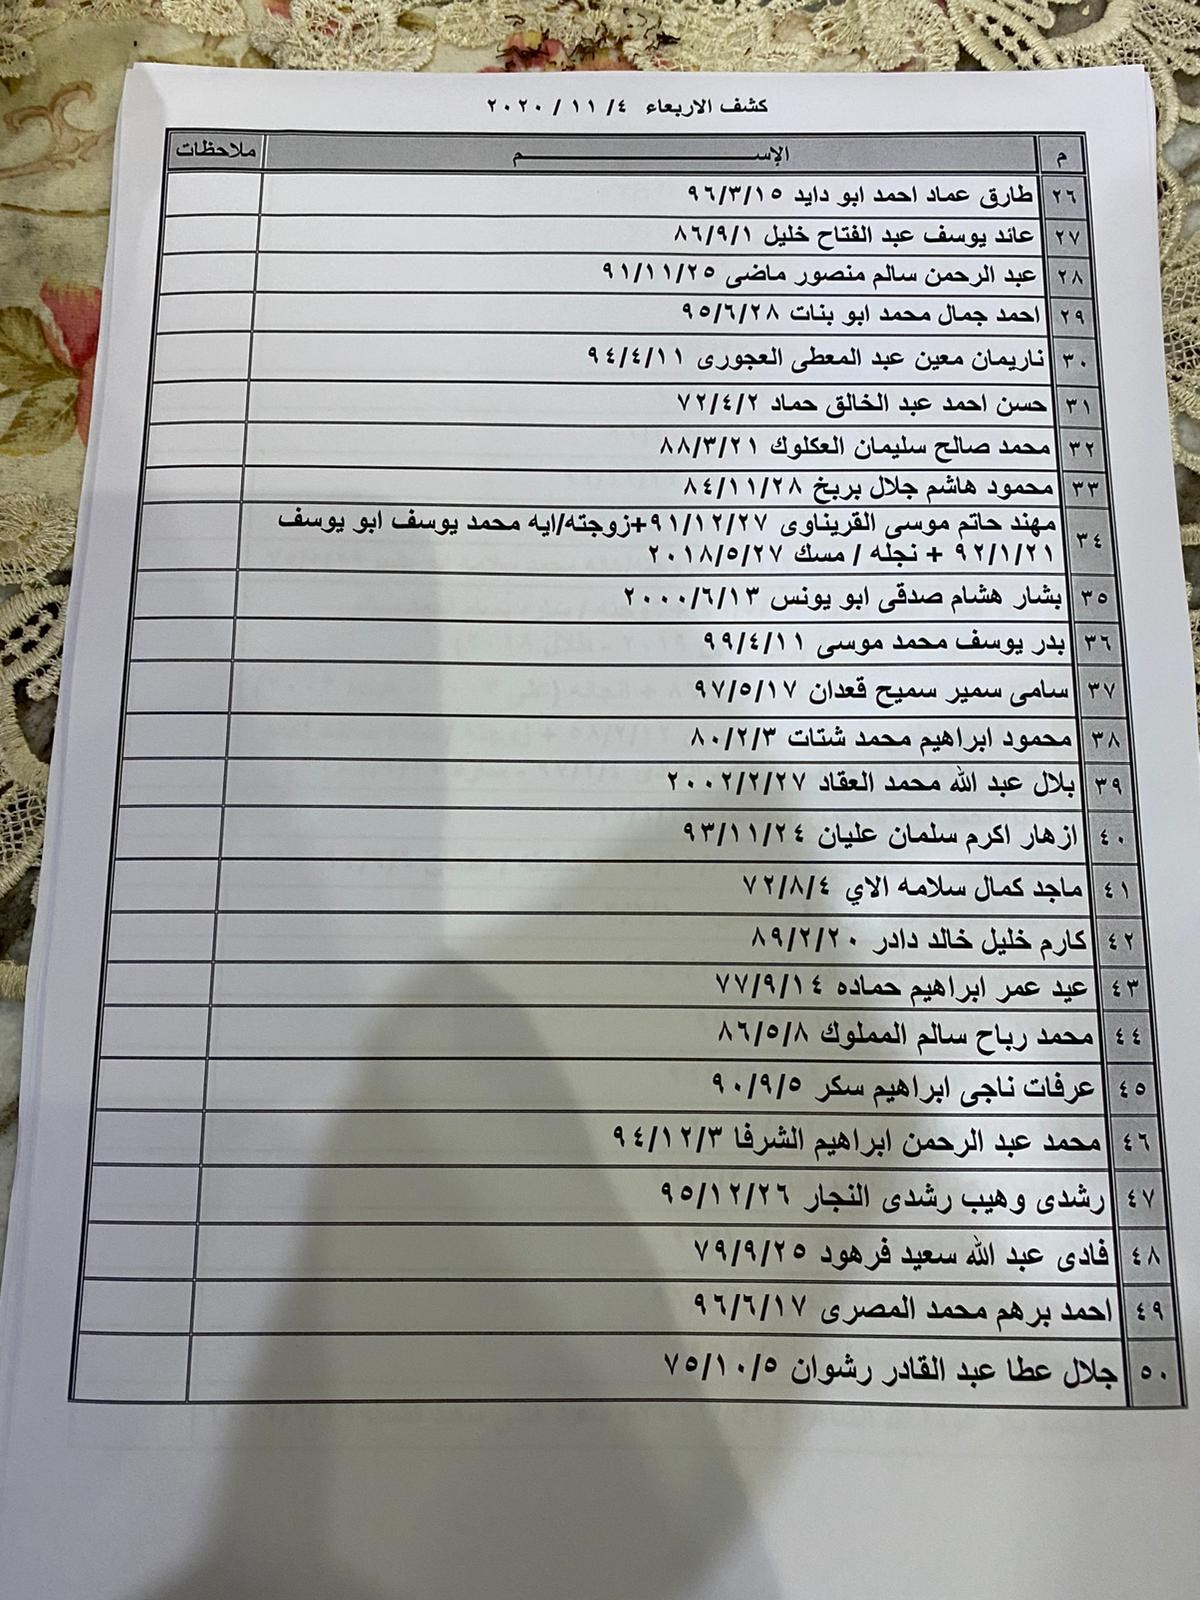 كشف الاربعاء ٤/ ١١ / ٢٠٢٠
م الإســـــــــــــــــم ملاحظات
٢٦ طارق عماد احمد ابو دايد ٩٦/٣/١٥
٢٧ عائد يوسف عبد الفتاح خليل ٨٦/٩/١
٢٨ عبد الرحمن سالم منصور ماضى ٩١/١١/٢٥
٢٩ احمد جمال محمد ابو بنات ٩٥/٦/٢٨
٣٠ ناريمان معين عبد المعطى العجورى ٩٤/٤/١١
٣١ حسن احمد عبد الخالق حماد ٧٢/٤/٢
٣٢ محمد صالح سليمان العكلوك ٨٨/٣/٢١
٣٣ محمود هاشم جلال بربخ ٨٤/١١/٢٨
٣٤ مهند حاتم موسى القريناوى ٩١/١٢/٢٧+زوجته/ايه محمد يوسف ابو يوسف
٩٢/١/٢١ + نجله / مسك ٢٠١٨/٥/٢٧
٣٥ بشار هشام صدقى ابو يونس ٢٠٠٠/٦/١٣
٣٦ بدر يوسف محمد موسى ٩٩/٤/١١
٣٧ سامى سمير سميح قعدان ٩٧/٥/١٧
٣٨ محمود ابراهيم محمد شتات ٨٠/٢/٣
٣٩ بلال عبد الله محمد العقاد ٢٠٠٢/٢/٢٧
٤٠ ازهار اكرم سلمان عليان ٩٣/١١/٢٤
٤١ ماجد كمال سلامه الاي ٧٢/٨/٤
٤٢ كارم خليل خالد دادر ٨٩/٢/٢٠
٤٣ عيد عمر ابراهيم حماده ٧٧/٩/١٤
٤٤ محمد رباح سالم المملوك ٨٦/٥/٨
٤٥ عرفات ناجى ابراهيم سكر ٩٠/٩/٥
٤٦ محمد عبد الرحمن ابراهيم الشرفا ٩٤/١٢/٣
٤٧ رشدى وهيب رشدى النجار ٩٥/١٢/٢٦
٤٨ فادى عبد الله سعيد فرهود ٧٩/٩/٢٥
٤٩ احمد برهم محمد المصرى ٩٦/٦/١٧
٥٠ جلال عطا عبد القادر رشوان ٧٥/١٠/٥